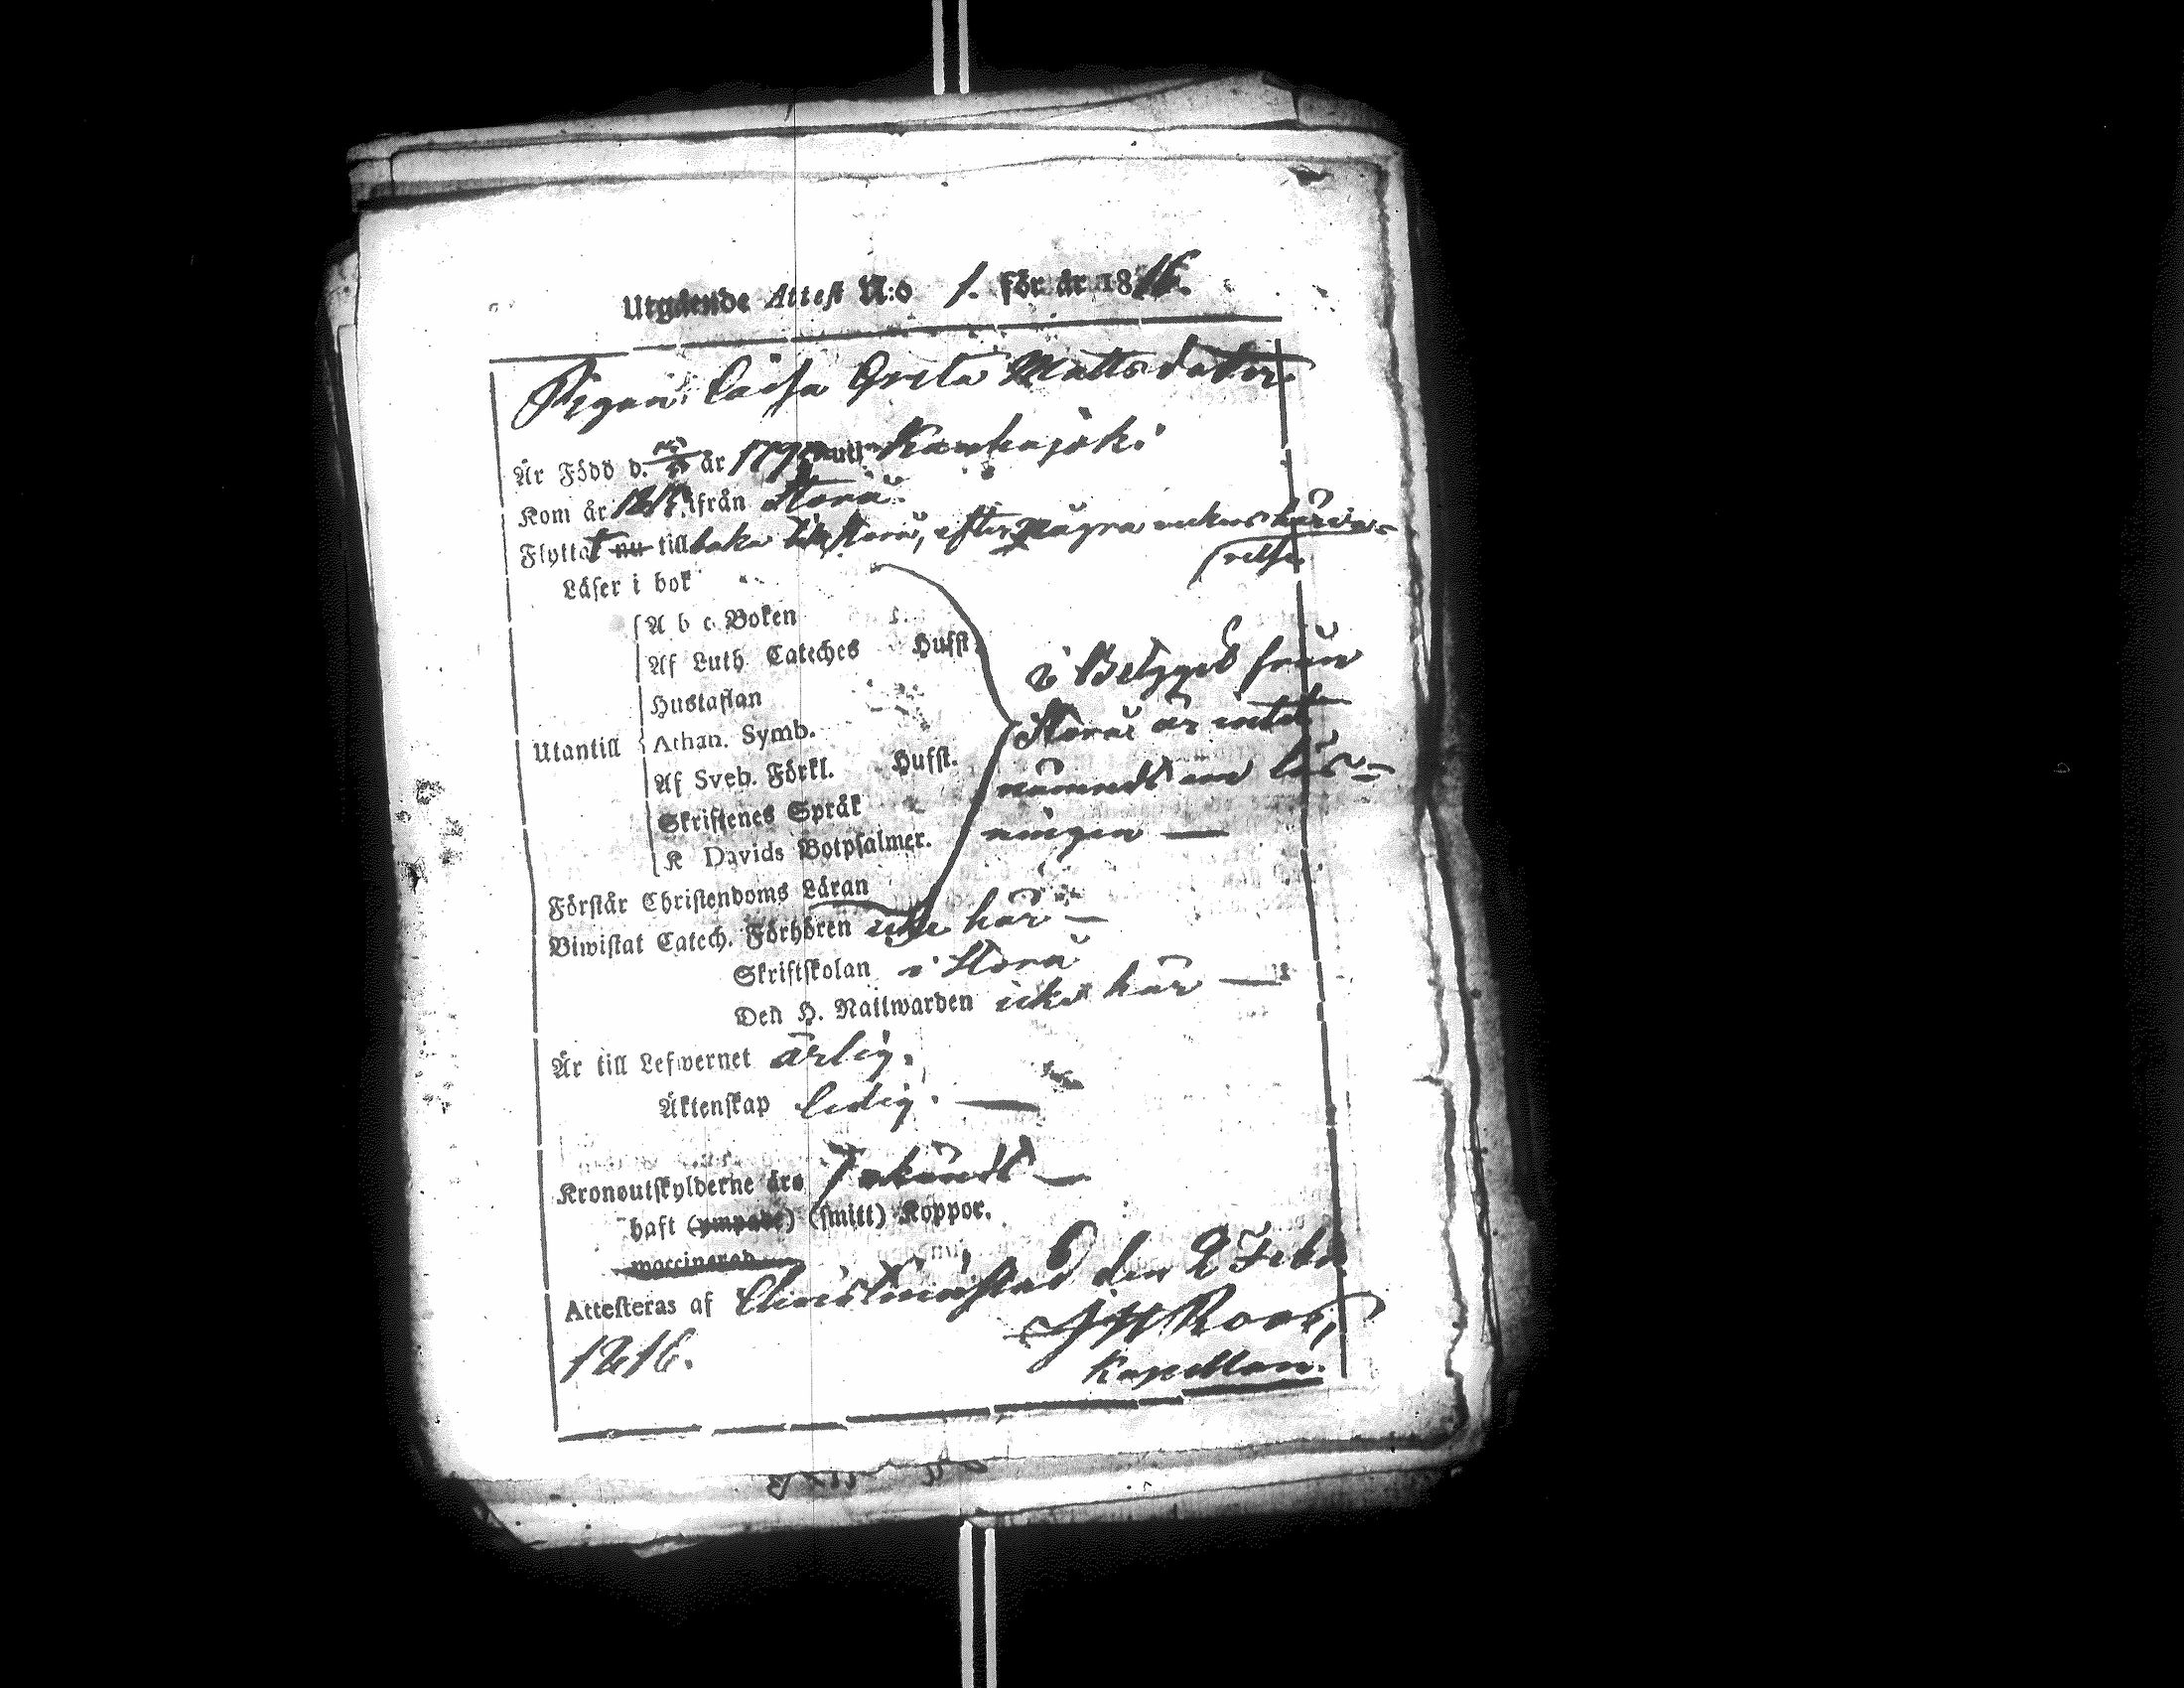 Utgående Attest N:o 1. för år 1816.
Pigan Caisa Greta Mattsdotter
Är Född d. år 179 uti Kauhajoki
Kom år 1815 ifrån Storå
Flyttat nu tillbaka till Storå, efter några veckors härva-
relse.
Läser i bok
A b c Boken
Af Luth Cateches Hufst.
Hustaflan
Utantill Athan. Symb.
Af Sveb. Förkl. Hufst.
Skriftenes Språk
K Davids Botpsalmer.
i Betyget från
Storå är intet
nämndt om läs-
ningen —
Förstår Christendoms Läran
Biwistat Catech. Förhören icke här —
Skriftskolan i Storå
Den H. Nattwarden icke här —
Är till Lefwernet ärlig.
Äktenskap ledig. —
Kronoutskylderne äro obekandt —
haft (ympade) (smitt) Koppor.
vaccinerad
Attesteras af Christinæstad den 2 Febr
1816.
Roos,
Kapellan.